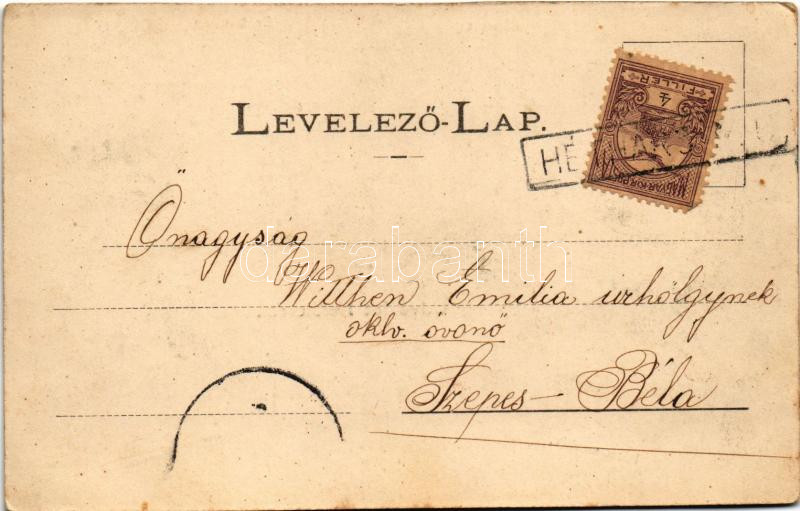 LEVELEZŐ-LAP.
4
FILLER
MAGYAR KIR. POSTA
HÉ
Őnagyság
Witthen Emilia urhölgynek
oklv. óvonő
Szepes-Béla
darabanth